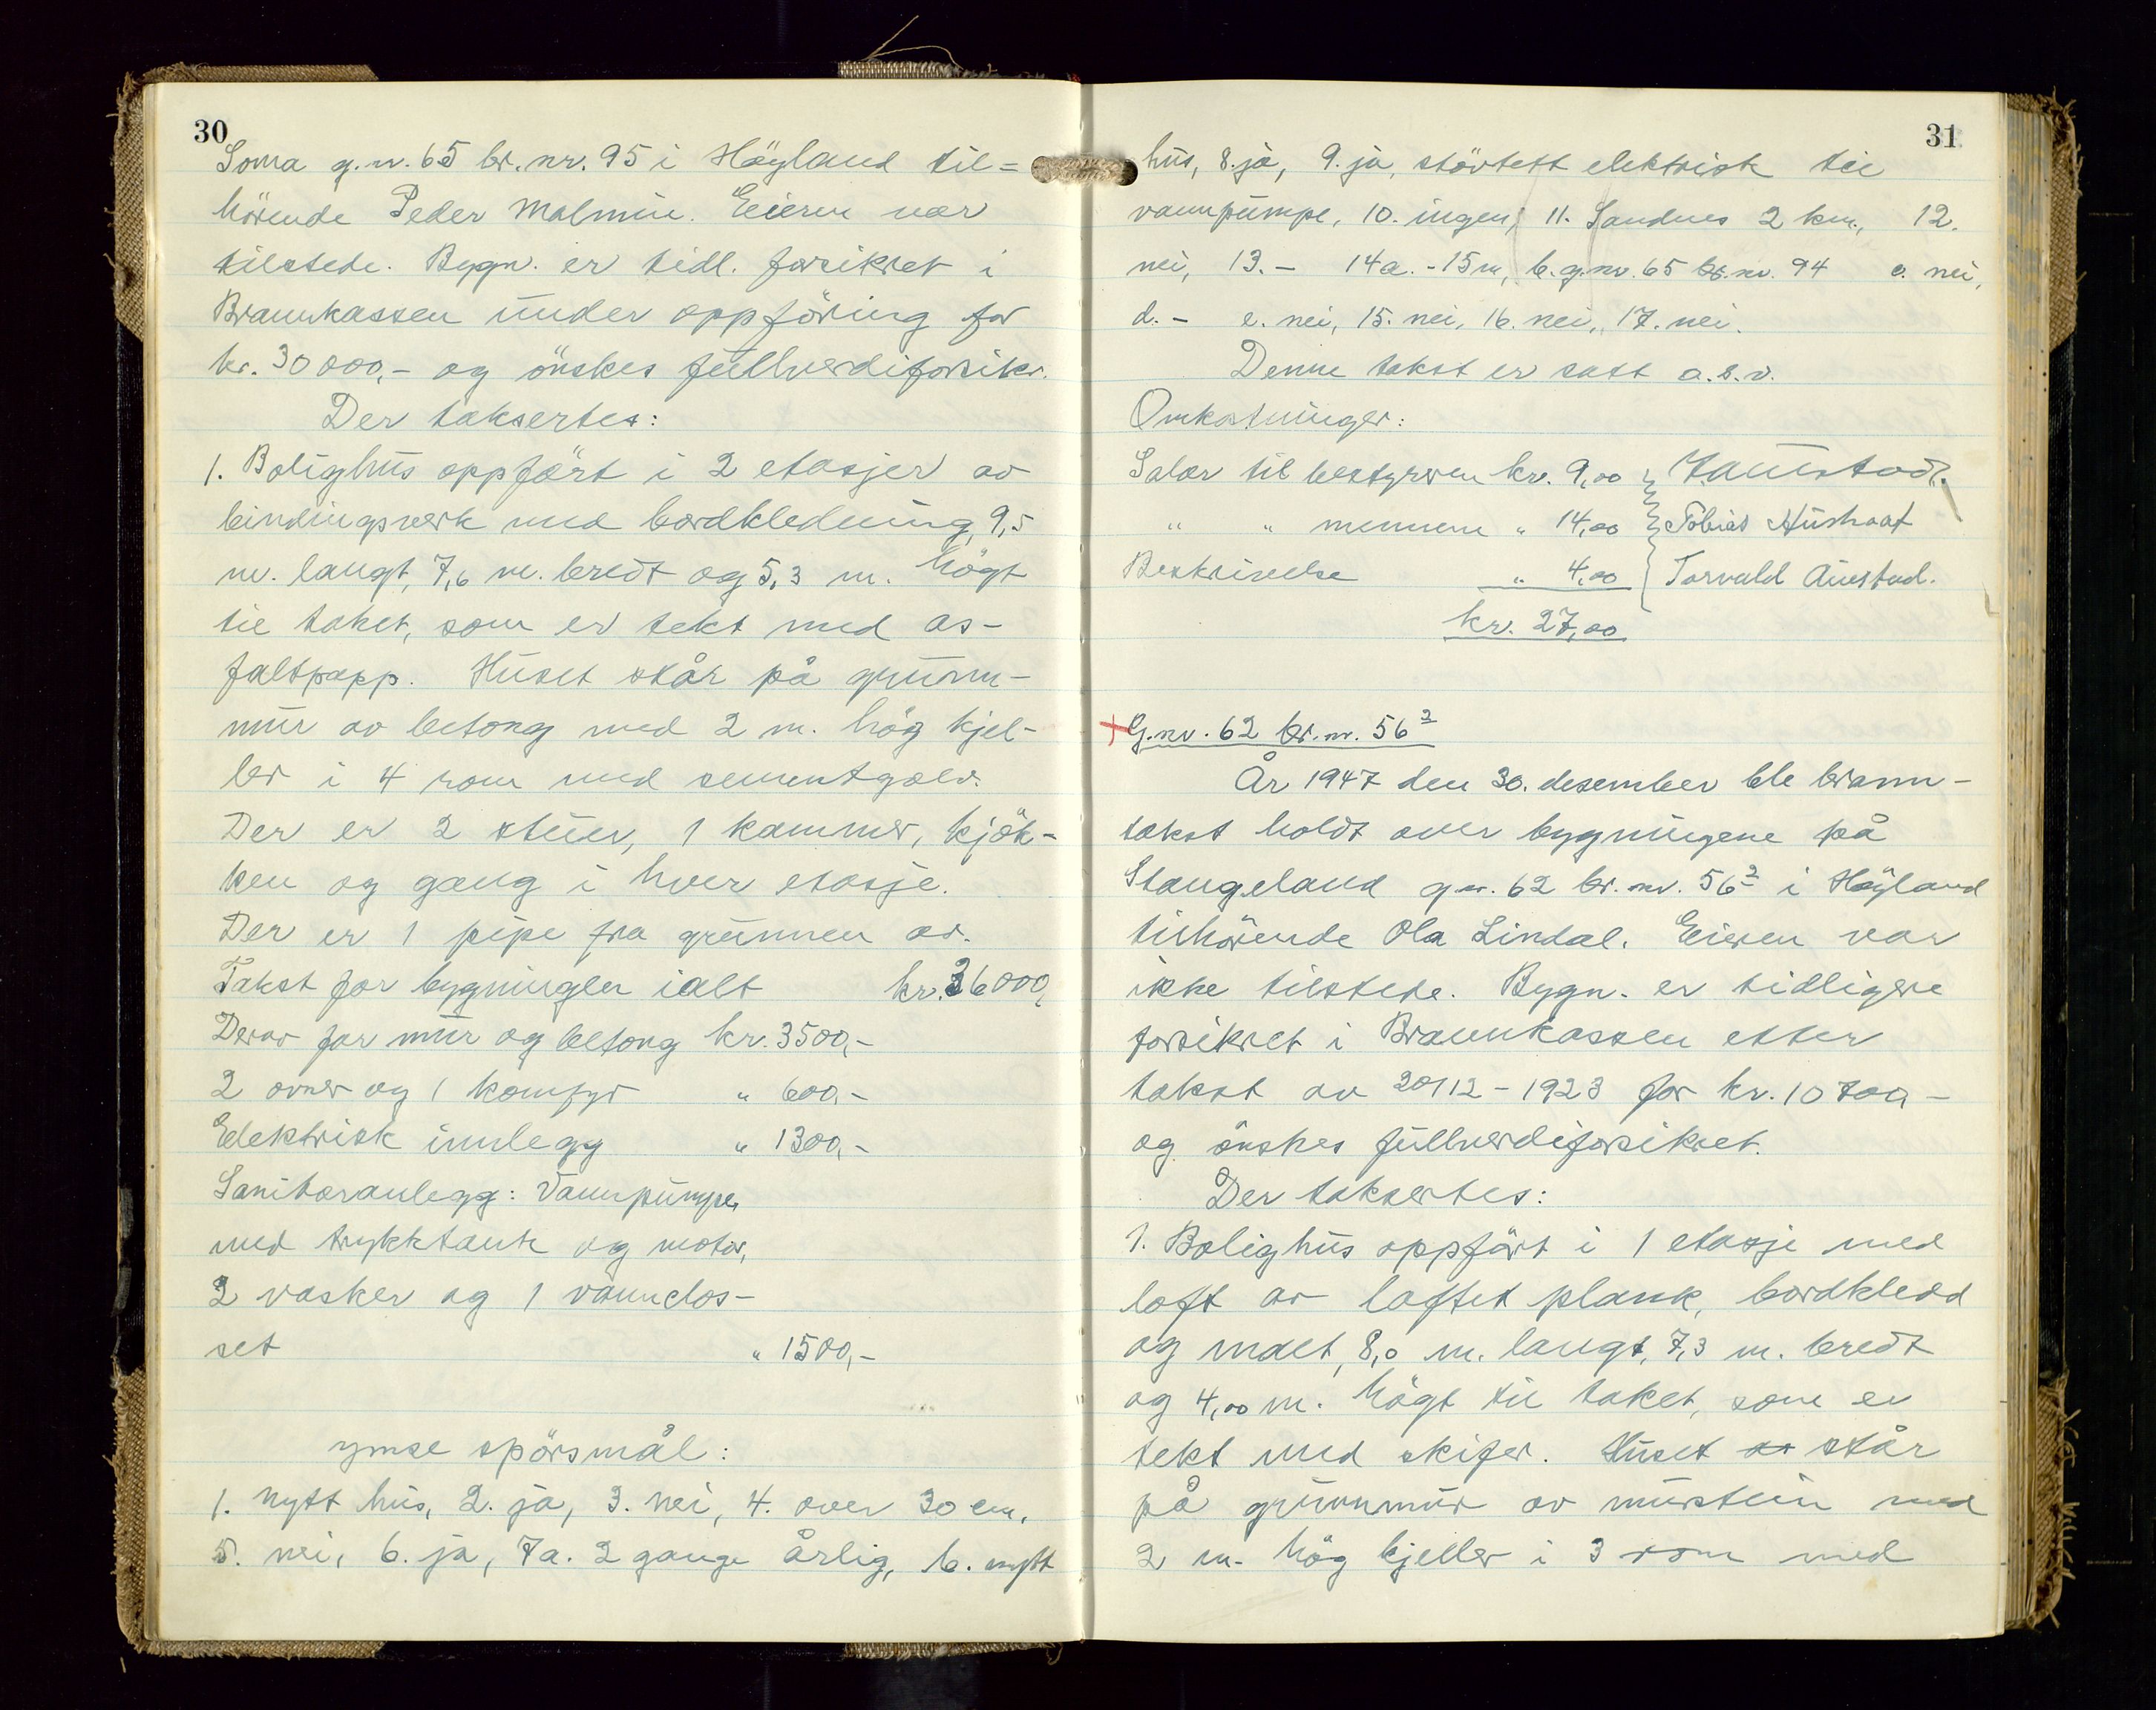 30
Soma g.nr. 65 br. nr. 95 i Høyland til=
hörende Peder Malmin. Eieren var
tilstede. Bygn. er tidl. forsikret i
Brannkassen under oppföring for
kr. 30 000,- og önskes fullverdiforsikr.
Der taksertes:
1. Bolighus oppfört i 2 etasjer av
bindingsverk med bordkledning, 9,5
m. langt, 7,6 m. bredt og 5,3 m. högt
til taket, som er tekt med as-
faltpapp. Huset står på grunn-
mur av betong med 2 m. hög kjel-
ler i 4 rom med sementgolv.
Der er 2 stuer, 1 kammer, kjök-
ken og gang i hver etasje.
Der er 1 pipe fra grunnen av.
Takst for bygningen ialt kr. 36000,
Derav for mur og betong kr. 3500,-
2 ovner og 1 komfyr " 600,-
Elektrisk innlegg " 1300,-
Sanitæranlegg: Vannpumpe,
med trykktank og motor,
2 vasker og 1 vannclos-
set " 1500,-
ymse spörsmål:
1. nytt hus, 2. ja, 3. nei, 4. over 30 cm.
5. nei, 6. ja, 7a. 2 gange årlig, b. nytt
31
hus, 8. ja, 9. ja, stövtett elektrisk til
vannpumpe, 10. ingen, 11. Sandnes 2 km., 12.
nei, 13. - 14a. - 15m, b. g.nr. 65 br.nr. 94 c. nei,
d. - e. nei, 15. nei, 16. nei, 17. nei.
Denne takst er satt o.s.v.
Omkostninger:
Salær til bestyreren kr. 9,00
" " mennene " 14,00 Tobias
Beskrivelse " 4,00 Torvald Austad.
kr. 27,00
G.nr. 62 br.nr. 56²
År 1947 den 30. desember ble brann-
takst holdt over bygningene på
Stangeland g.nr. 62 br. nr. 56² i Høyland
tilhörende Ola Lindal. Eieren var
ikke tilstede. Bygn. er tidligere
forsikret i Brannkassen etter
takst av 20/12 - 1923 for kr. 10 700,-
og önskes fullverdiforsikret.
Der taksertes:
1. Bolighus oppfört i 1 etasje med
loft av laftet plank, bordkledd
og malt, 8,0 m. langt, 7,3 m. bredt
og 4,00 m. högt til taket, som er
tekt med skifer. Huset av står
på grunnmur av murstein med
2 m. hög kjeller i 3 rom med